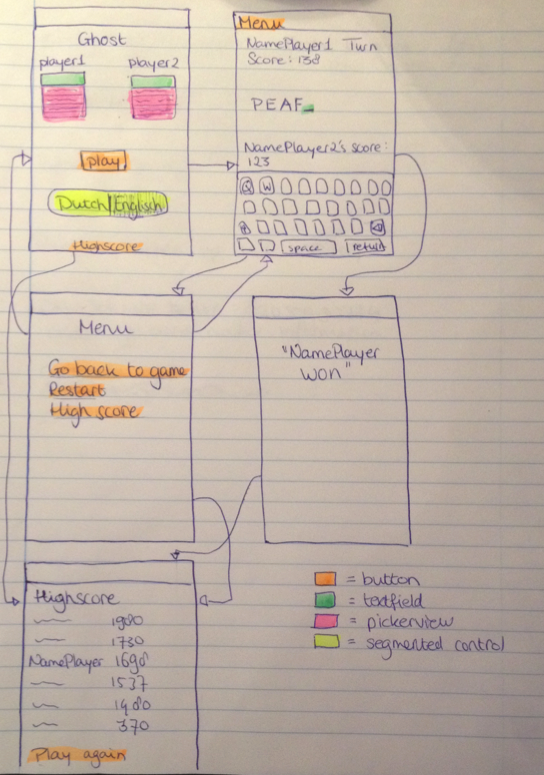 Ghost
player1 player2
play
Dutch Englisch
Highscore
Menu
NamePlayer1 Turn
Score: 138
PEAF
NamePlayer2's score:
123
Q W
space return
Menu
Go back to game
Restart
High score
"NamePlayer
won"
Highscore
1980
1730
NamePlayer 1698
1537
1480
370
Play again
= button
= textfield
= pickerview
= segmented control